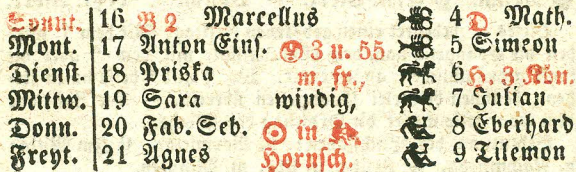 Sonnt. 16 B 2 Marcellus 4 D Math.
Mont. 17 Anton Einſ. 3 u. 55 5 Simeon
Dienſt. 18 Priska m. fr., 6 H. 3 Kön.
Mittw. 19 Sara windig, 7 Julian
Donn. 20 Fab. Seb. in 8 Eberhard
Freyt. 21 Agnes Hornſch. 9 Tilemon